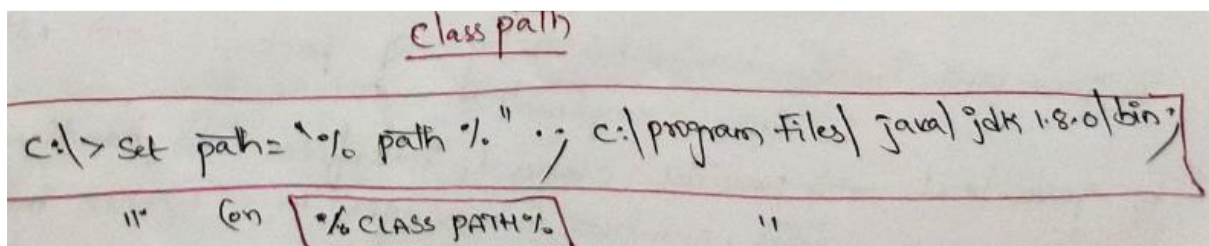 Class path
C:\> Set path= "% path %" .; C:\program Files\ java\ jdk 1.8.0\bin;
" (or) %CLASS PATH% "